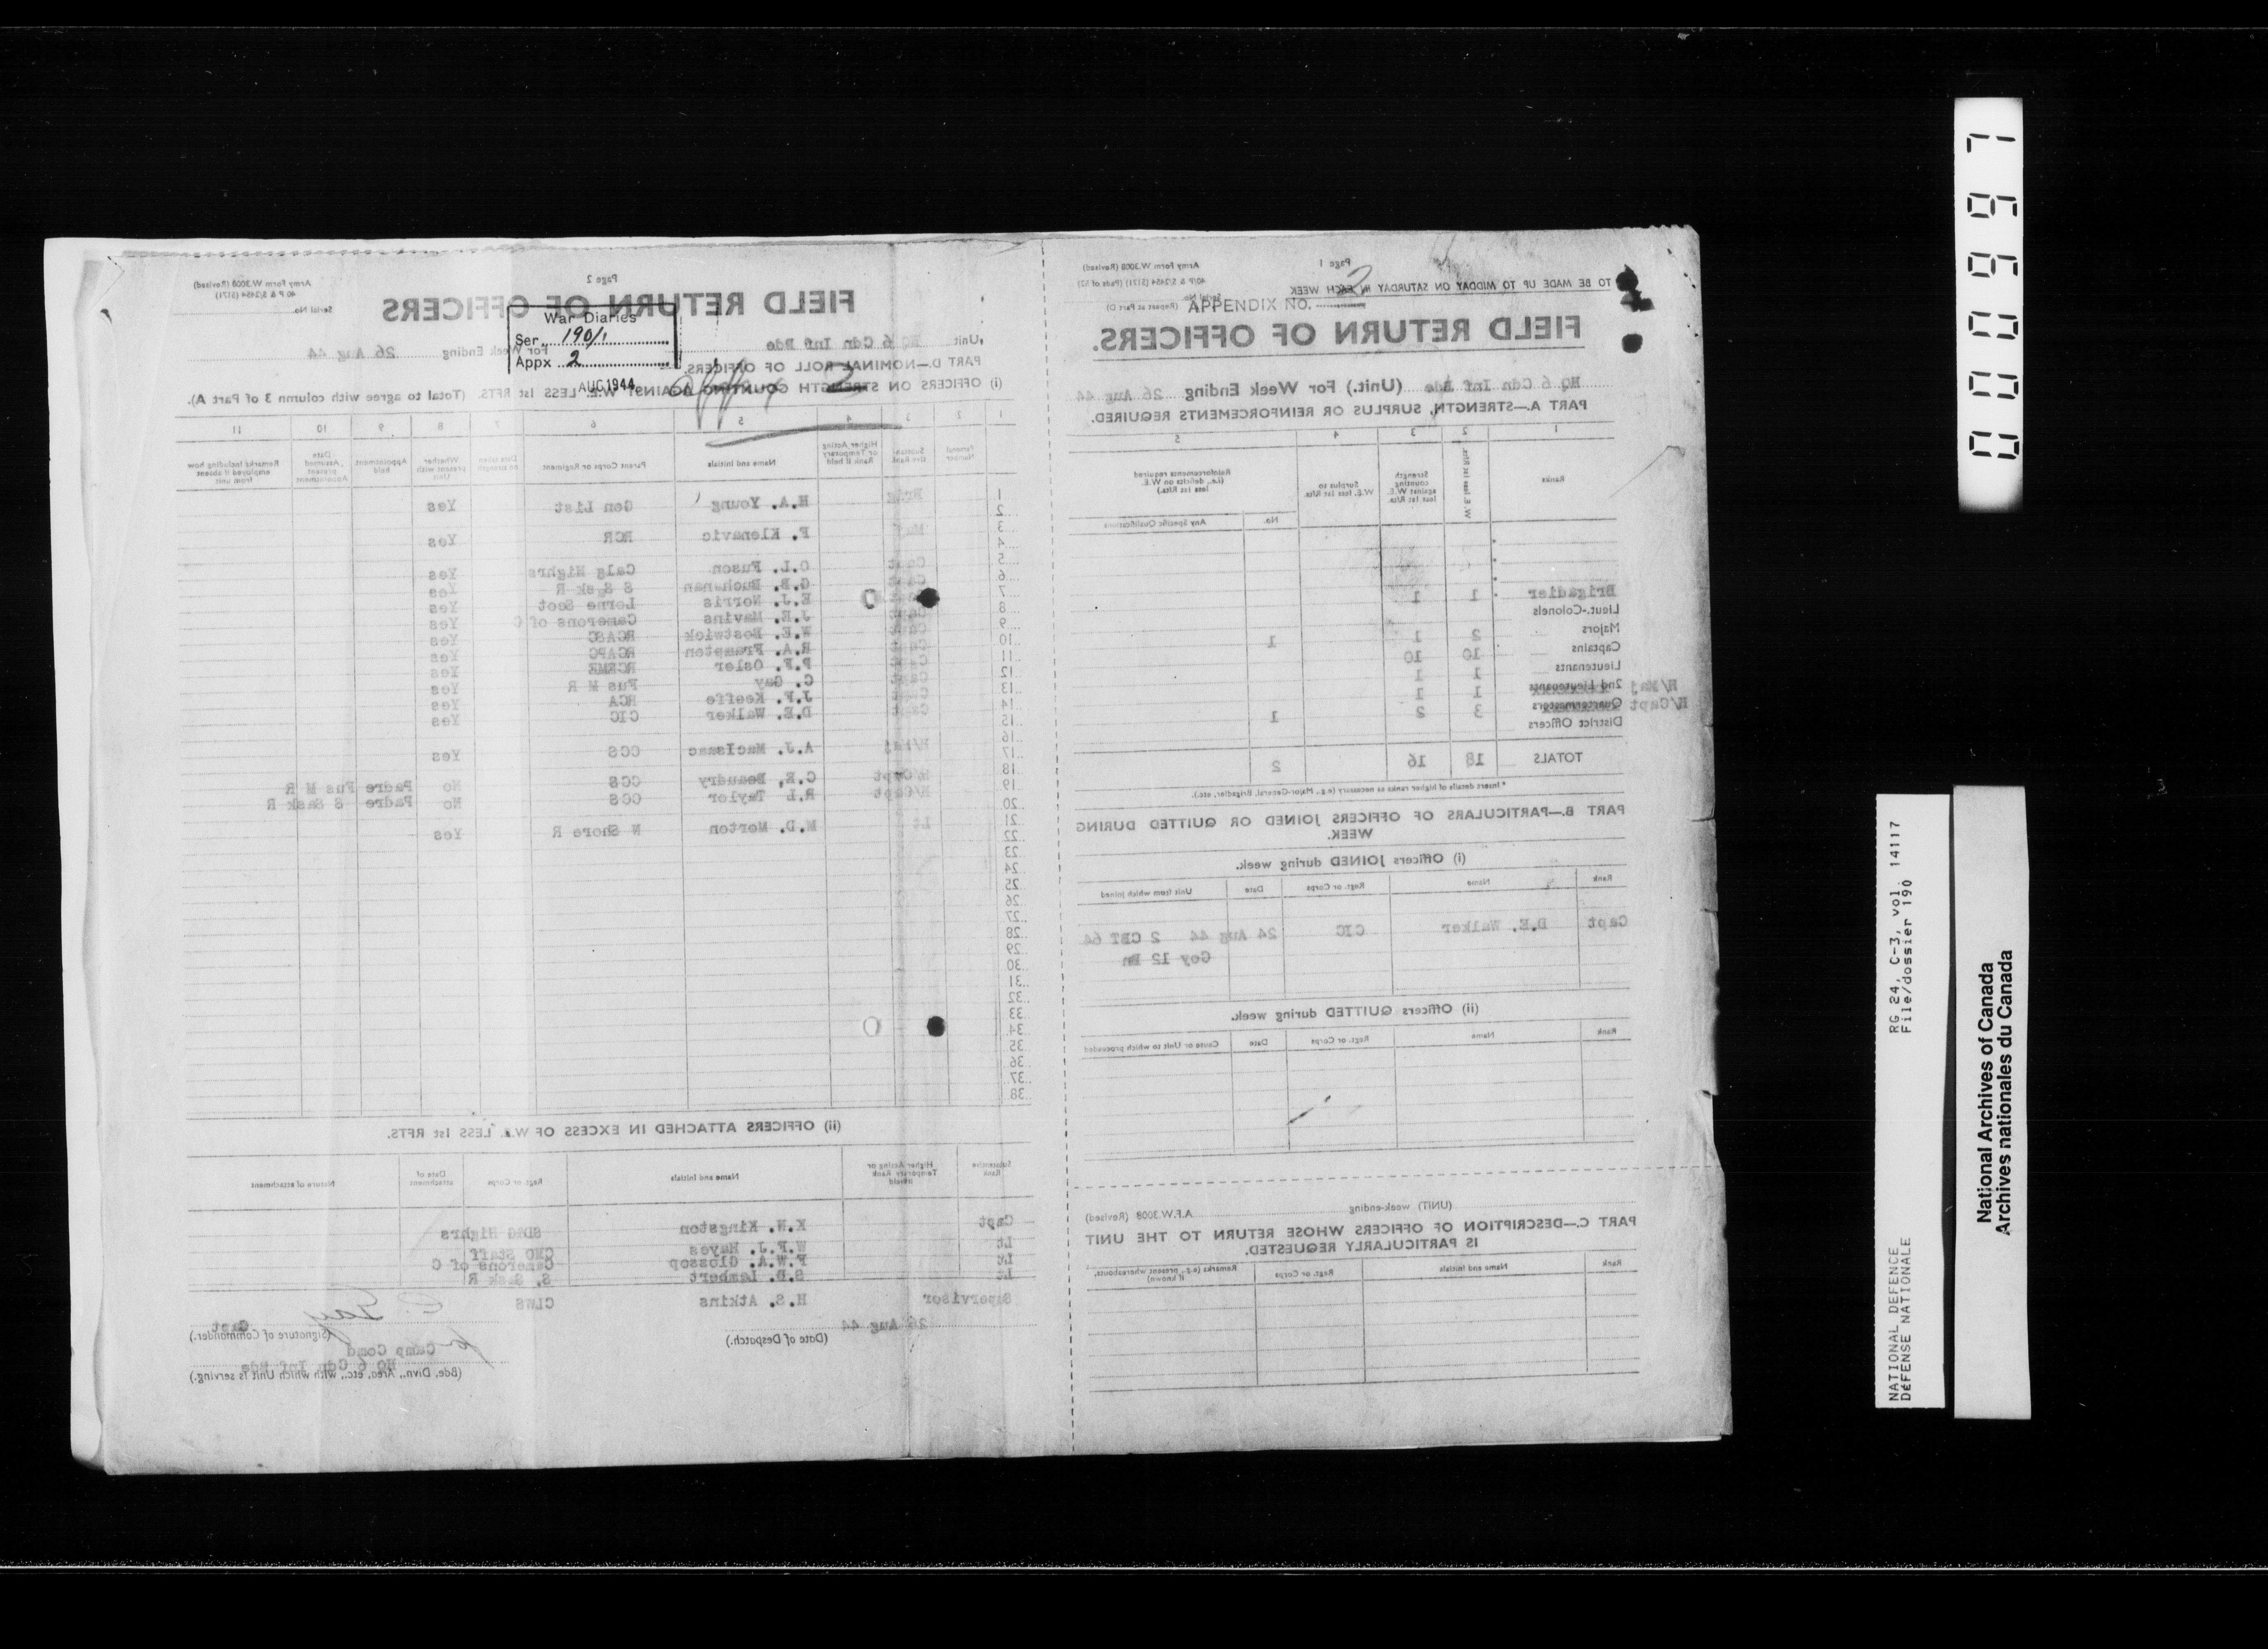 Page 1
Army Form W.3008 (Revised)
TO BE MADE UP TO MIDDAY ON SATURDAY IN EACH WEEK
APPENDIX NO. 2
Serial No.
(Repeat at Part D)
FIELD RETURN OF OFFICERS.
HQ 6 Cdn Inf Bde (Unit.) For Week Ending 26 Aug 44
PART A.—STRENGTH, SURPLUS OR REINFORCEMENTS REQUIRED.
1 2 3 4 5
Ranks
W.E. less 1st Rfts.
Strength counting against W.E. less 1st Rfts.
Surplus to W.E. less 1st Rfts.
Reinforcements required (i.e., deficits on W.E. less 1st Rfts.)
No. Any Specific Qualifications
Brigadier 1 1
Lieut.-Colonels
Majors 2 1 1
Captains 10 10
Lieutenants 1 1
H/Maj 2nd Lieutenants 1 1
H/Capt Quartermasters 3 2 1
District Officers
TOTALS 18 16 2
* Insert details of higher ranks as necessary (e.g., Major-General, Brigadier, etc.).
PART B.—PARTICULARS OF OFFICERS JOINED OR QUITTED DURING WEEK.
(i) Officers JOINED during week.
Rank Name Regt. or Corps Date Unit from which joined
Capt D.E. Walker CIC 24 Aug 44 2 CBT 64
Coy 12 Bn
(ii) Officers QUITTED during week.
Rank Name Regt. or Corps Date Cause or Unit to which proceeded
(UNIT) week-ending A.F.W.3008 (Revised)
PART C.—DESCRIPTION OF OFFICERS WHOSE RETURN TO THE UNIT
IS PARTICULARLY REQUESTED.
Rank Name and Initials Regt. or Corps Remarks (e.g., present whereabouts, if known)
Page 2
Army Form W.3008 (Revised)
Serial No.
FIELD RETURN OF OFFICERS
War Diaries
Ser. 190/1
Appx 2
AUG 1944
Unit HQ 6 Cdn Inf Bde For Week Ending 26 Aug 44
PART D.—NOMINAL ROLL OF OFFICERS.
(i) OFFICERS ON STRENGTH COUNTING AGAINST W.E. LESS 1st RFTS. (Total to agree with column 3 of Part A).
1 2 3 4 5 6 7 8 9 10 11
Personal Number
Substantive Rank
Higher Acting or Temporary Rank if held
Name and Initials
Parent Corps or Regiment
Date taken on strength
Whether present with Unit
Appointment held
Date present Appointment Assumed
Remarks including how employed if absent from unit
Brig H.A. Young Gen List Yes
Maj F. Klenavic RCR Yes
Capt O.L. Fuson Calg Highrs Yes
Capt G.B. Buchanan S Sask R Yes
Capt E.J. Norris Lorne Scot Yes
Capt J.E. Mavins Camerons of C Yes
Capt W.E. Bostwick RCASC Yes
Capt R.A. Frampton RCAPC Yes
Capt P.F. Osler RCEME Yes
Capt C. Gay Fus M R Yes
Capt J.F. Keeffe RCA Yes
Capt D.E. Walker CIC Yes
H/Maj A.J. MacIsaac CCS Yes
H/Capt C.E. Beaudry CCS No Padre Fus M R
H/Capt R.L Taylor CCS No Padre S Sask R
Lt M.D. Morton N Shore R Yes
(ii) OFFICERS ATTACHED IN EXCESS OF W.E. LESS 1st RFTS.
Substantive Rank
Higher Acting or Temporary Rank if held
Name and Initials
Regt. or Corps
Date of attachment
Nature of attachment
Capt K.W. Kingston SD&G Highrs
Lt W.F.J. Hayes CMQ Staff
Lt F.W.A. Glossop Camerons of C
Lt S.B. Lambert S. Sask R
Supervisor H.S. Atkins CLWS
26 Aug 44
(Date of Despatch.)
C Gay Capt
(Signature of Commander.)
for Camp Comd
HQ 6 Cdn Inf Bde
(Bde, Divn., Area, etc., with which Unit is serving.)
000997
NATIONAL DEFENCE RG 24, C-3, vol. 14117
DÉFENSE NATIONALE File/dossier 190
National Archives of Canada
Archives nationales du Canada